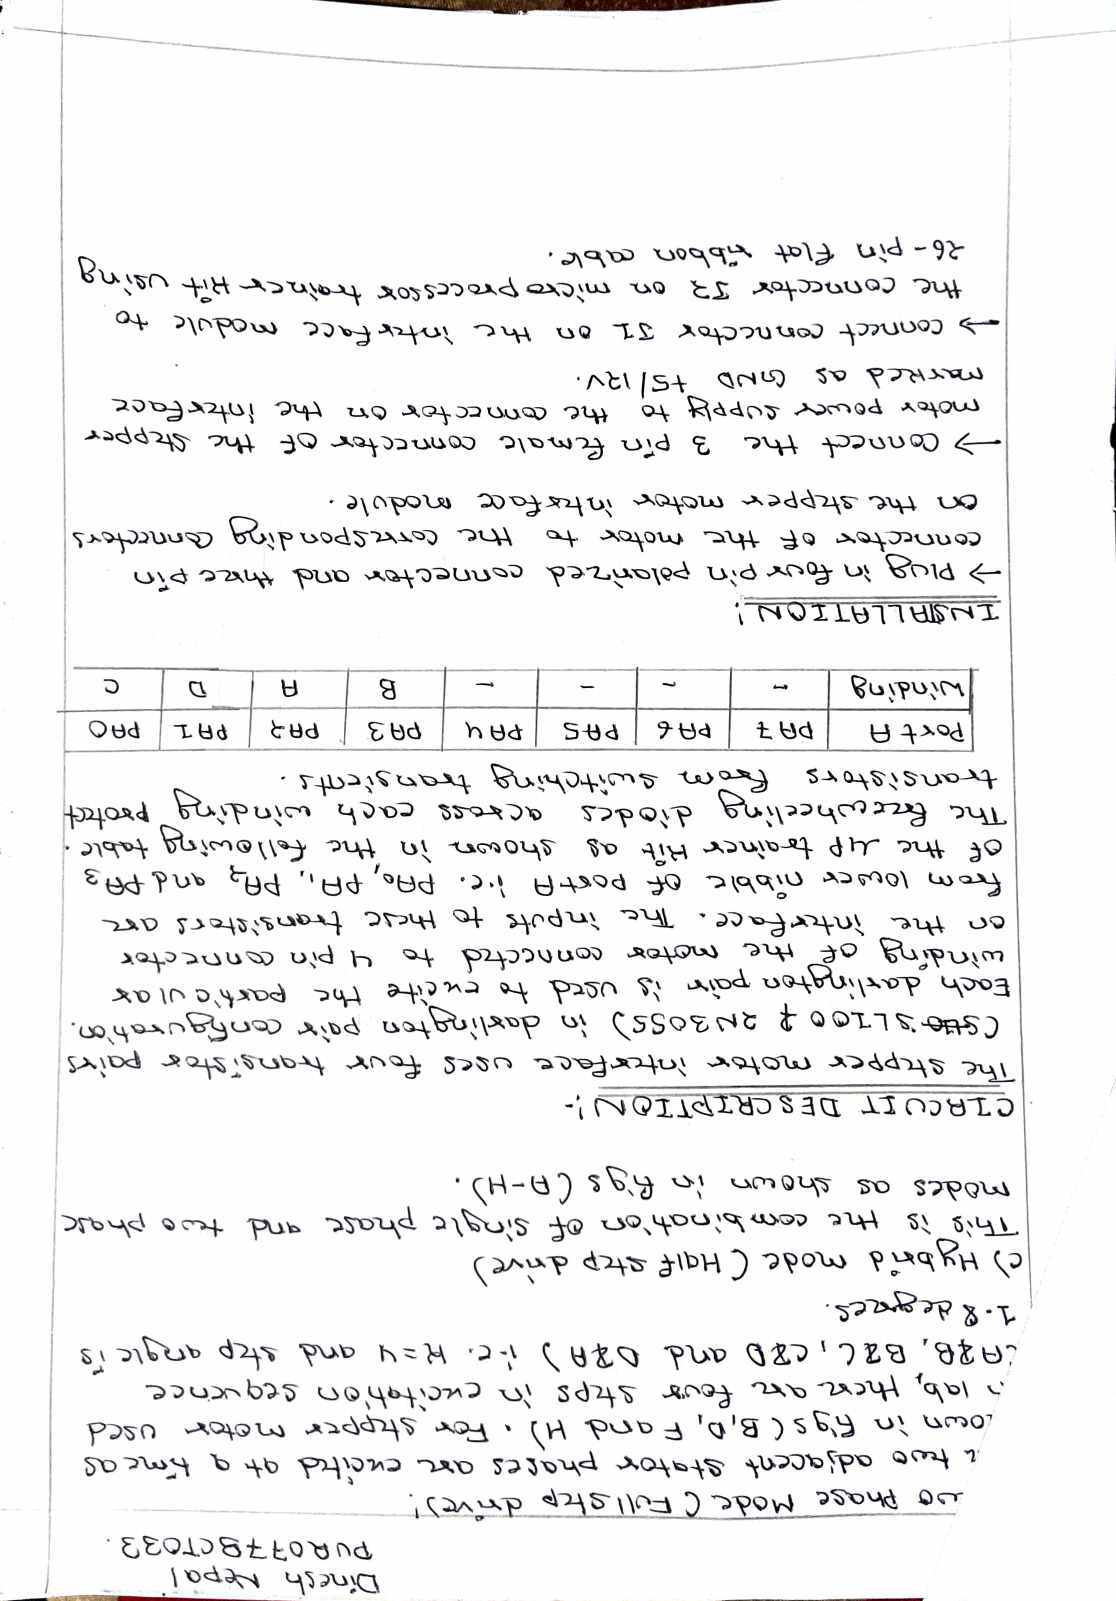 Dinesh Nepal
PUR077BCT033.
wo Phase Mode (Full step drive)!
two adjacent stator phases are excited at a time as
own in figs (B, D, F and H). For stepper motor used
lab, there are four steps in excitation sequence
(A&B, B&C, C&D and D&A) i.e. K=4 and step angle is
1.8 degrees.
c) Hybrid mode (Half step drive)
This is the combination of single phase and two phase
modes as shown in figs (A-H).
CIRCUIT DESCRIPTION:-
The stepper motor interface uses four transistor pairs
(SL100 & 2N3055) in darlington pair configuration.
Each darlington pair is used to excite the particular
winding of the motor connected to 4 pin connector
on the interface. The inputs to these transistors are
from lower nibble of port A i.e. PA0, PA1, PA2 and PA3
of the μP trainer kit as shown in the following table.
The freewheeling diodes across each winding protect
transistors from switching transients.
Port A PA7 PA6 PA5 PA4 PA3 PA2 PA1 PA0
Winding - - - - B A D C
INSTALLATION:
→ Plug in four pin polarized connector and three pin
connector of the motor to the corresponding connectors
on the stepper motor interface module.
→ Connect the 3 pin female connector of the stepper
motor power supply to the connector on the interface
marked as GND +5/12V.
→ connect connector J1 on the interface module to
the connector J2 on microprocessor trainer kit using
26-pin flat ribbon cable.